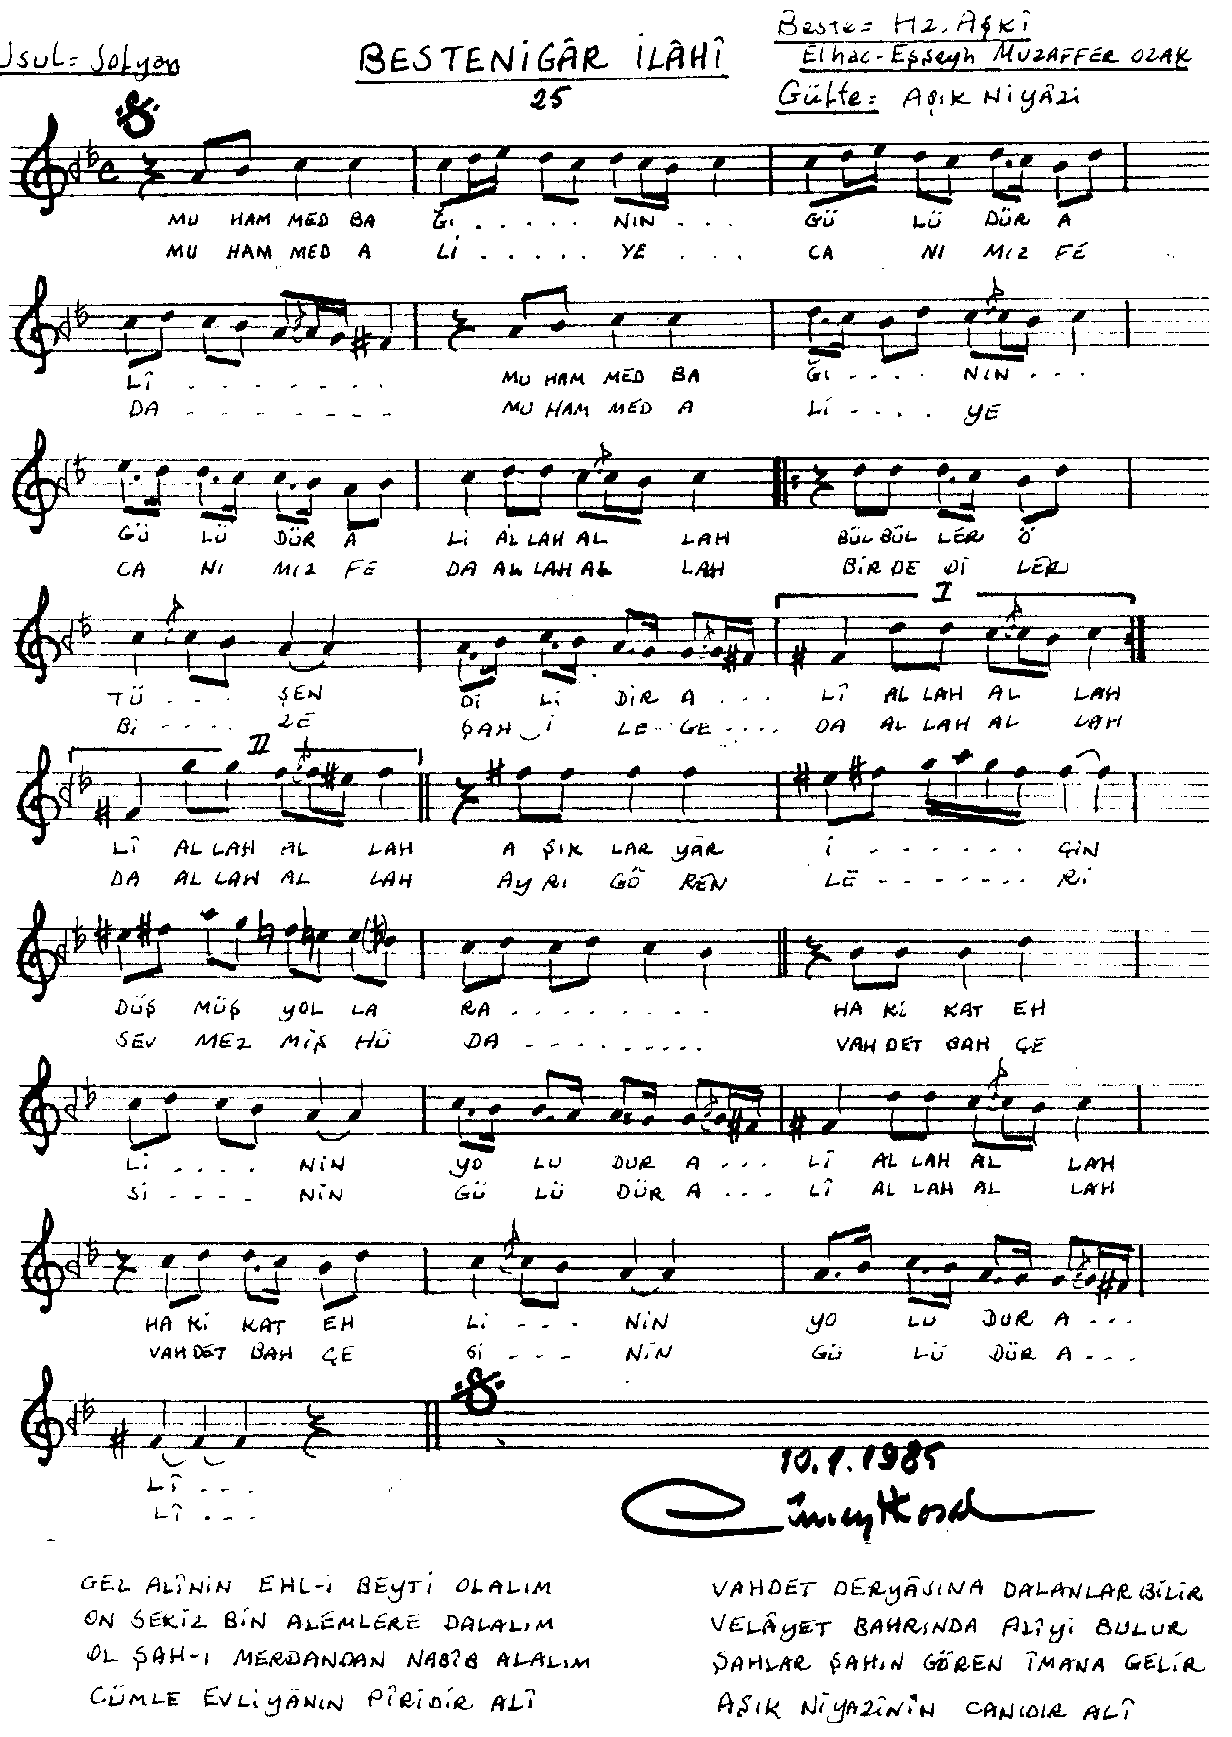 Usul= Sofyan
BESTENİGÂR İLÂHÎ
25
Beste= Hz. Aşkî
Elhac-Eşşeyh MUZAFFER OZAK
Güfte= AŞIK NİYÂZİ
MU HAM MED BA ĞI . . . . . NIN . . . GÜ LÜ DÜR A
MU HAM MED A Lİ . . . . . YE . . . CA NI MIZ FE
LÎ - - - - - - - MU HAM MED BA ĞI - - . . NIN - - -
DA - - - - - - - MU HAM MED A Lİ - . . . YE
GÜ LÜ DÜR A Lİ AL LAH AL LAH BÜL BÜL LER Ö
CA NI MIZ FE DA AL LAH AL LAH BİR DE Dİ LER
I
TÜ - - - - ŞEN Dİ Lİ DİR A . . . LÎ AL LAH AL LAH
Bİ - - - - ZE ŞAH İ LE - - GE - . . . DA AL LAH AL LAH
II
LÎ AL LAH AL LAH A ŞIK LAR YÂR İ - - - - - - - ÇİN
DA AL LAH AL LAH AY RI GÖ REN LE - - - - - - - Rİ
DÜŞ MÜŞ YOL LA RA . . . . . . . . HA Kİ KAT EH
SEV MEZ MİŞ HÜ DA - . . . . . . . . VAH DET BAH ÇE
Lİ . . . . NİN YO LU DUR A . . . LÎ AL LAH AL LAH
Sİ - - - - NİN GÜ LÜ DÜR A . . . LÎ AL LAH AL LAH
HA Kİ KAT EH Lİ - - - NİN YO LU DUR A - - -
VAH DET BAH ÇE Sİ - - - NİN GÜ LÜ DÜR A - - -
LÎ - - -
LÎ . . .
10.1.1985
GEL ALÎNİN EHL-İ BEYTİ OLALIM
ON SEKİZ BİN ALEMLERE DALALIM
OL ŞAH-I MERDANDAN NASÎB ALALIM
CÜMLE EVLİYÂNIN PÎRİDİR ALÎ
VAHDET DERYÂSINA DALANLAR BİLİR
VELÂYET BAHRINDA ALÎYİ BULUR
ŞAHLAR ŞAHIN GÖREN ÎMANA GELİR
AŞIK NİYAZÎNİN CANIDIR ALÎ